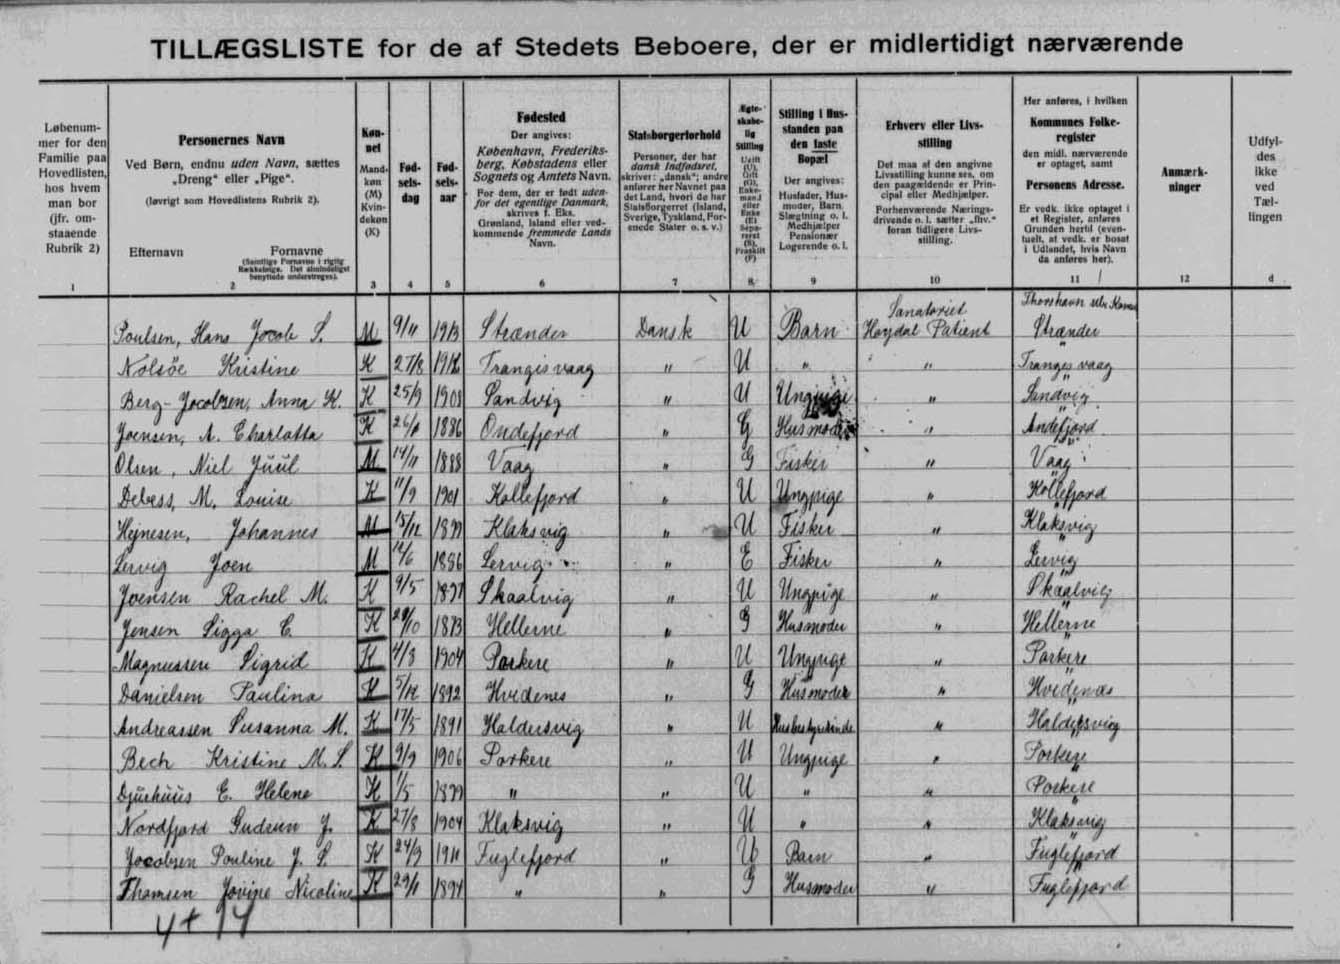 TILLÆGSLISTE for de af Stedets Beboere, der er midlertidigt nærværende
Løbenummer for den Familie paa Hovedlisten, hos hvem man bor (jfr. omstaaende Rubrik 2)
Personernes Navn
Ved Børn, endnu uden Navn, sættes „Dreng“ eller „Pige“.
(Iøvrigt som Hovedlistens Rubrik 2).
Efternavn Fornavne
(Samtlige Fornavne i rigtig Rækkefølge. Det almindeligst benyttede understreges).
Kønnet
Mandkøn (M) Kvindekøn (K)
Fødselsdag
Fødselsaar
Fødested
Der angives:
København, Frederiksberg, Købstadens eller Sognets og Amtets Navn.
For dem, der er født udenfor det egentlige Danmark, skrives f. Eks. Grønland, Island eller vedkommende fremmede Lands Navn.
Statsborgerforhold
Personer, der har dansk Indfødsret, skriver: „dansk“; andre anfører her Navnet paa det Land, hvori de har Statsborgerret (Island, Sverige, Tyskland, Forenede Stater o. s. v.)
Ægteskabelig Stilling
Ugift (U), Gift (G), Enkemand eller Enke (E) Separeret (S), Fraskilt (F)
Stilling i Husstanden paa den faste Bopæl
Der angives:
Husfader, Husmoder, Barn, Slægtning o. l. Medhjælper Pensionær Logerende o. l.
Erhverv eller Livsstilling
Det maa af den angivne Livsstilling kunne ses, om den paagældende er Principal eller Medhjælper.
Forhenværende Næringsdrivende o. l. sætter „fhv.“ foran tidligere Livsstilling.
Her anføres, i hvilken Kommunes Folkeregister den midl. nærværende er optaget, samt Personens Adresse.
Er vedk. ikke optaget i et Register, anføres Grunden hertil (eventuelt, at vedk. er bosat i Udlandet, hvis Navn da anføres her).
Anmærkninger
Udfyldes ikke ved Tællingen
1 2 3 4 5 6 7 8 9 10 11 12 d
Sanatoriet Thorshavn
Poulsen, Hans Jocob S. M 9/11 1913 Strænder Dansk U Barn Hoydal Patient Strænder
Nolsöe Kristine K 27/8 Trangisvaag " U " " Trangesvaag
Berg-Jocobsen, Anna K. K 25/9 1908 Sandvig " U Ungpige " Sandvig
Joensen, A. Charlotta K 1886 Ondefjord " G Husmoder " Andefjord
Olsen, Niel Júúl M 14/11 1888 Vaag " G Fisker " Vaag
Debess, M. Louise K 11/9 1901 Kollefjord " U Ungpige " Kollefjord
Hejnesen, Johannes M 15/12 Klaksvig " U Fisker " Klaksvig
Lervig Joen M 1886 Lervig " E Fisker " Lervig
Joensen Rachel M. K 9/5 Skaalvig " U Ungpige " Skaalvig
Jensen Sigga C. K 1873 Hellerne " G Husmoder " Hellerne
Magnussen Sigrid K 4/8 1904 Porkere " U Ungpige " Porkere
Danielsen Paulina K 5/12 1892 Hvidenes " G Husmoder " Hvidenæs
Andreassen Susanna M. K 17/5 1891 Haldersvig " U Husbestyrerinde " Haldersvig
Bech Kristine M. S. K 9/9 1906 Porkere " U Ungpige " Porkere
Djúrhúús E. Helene K 1/5 " " U " " Porkere
Nordfjord Gudrun J. K 27/8 1904 Klaksvig " U " " Klaksvig
Jocobsen Pouline J. S. K 24/9 1911 Fuglefjord " U Barn " Fuglefjord
Thomsen Jovine Nicoline K 29/1 " " G Husmoder " Fuglefjord
4 + 14